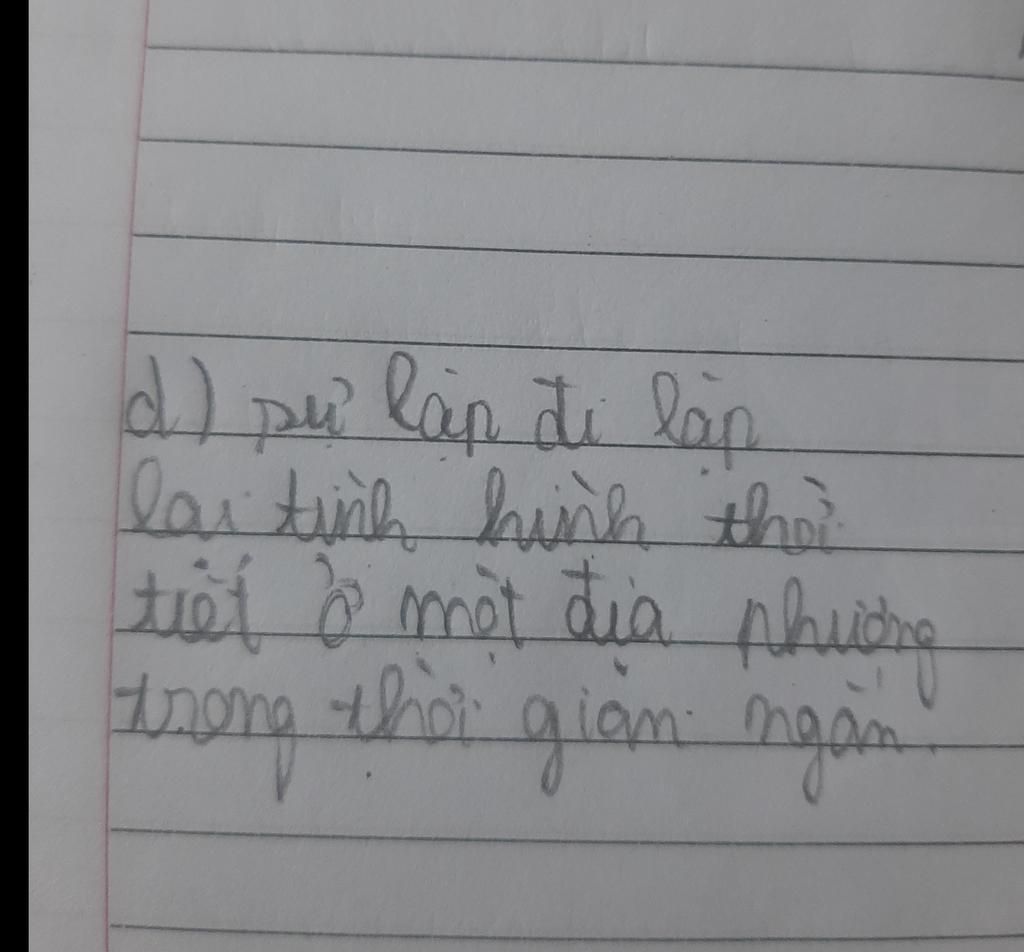 d) sự lặp đi lặp
lại tình hình thời
tiết ở một địa phương
trong thời gian ngắn.